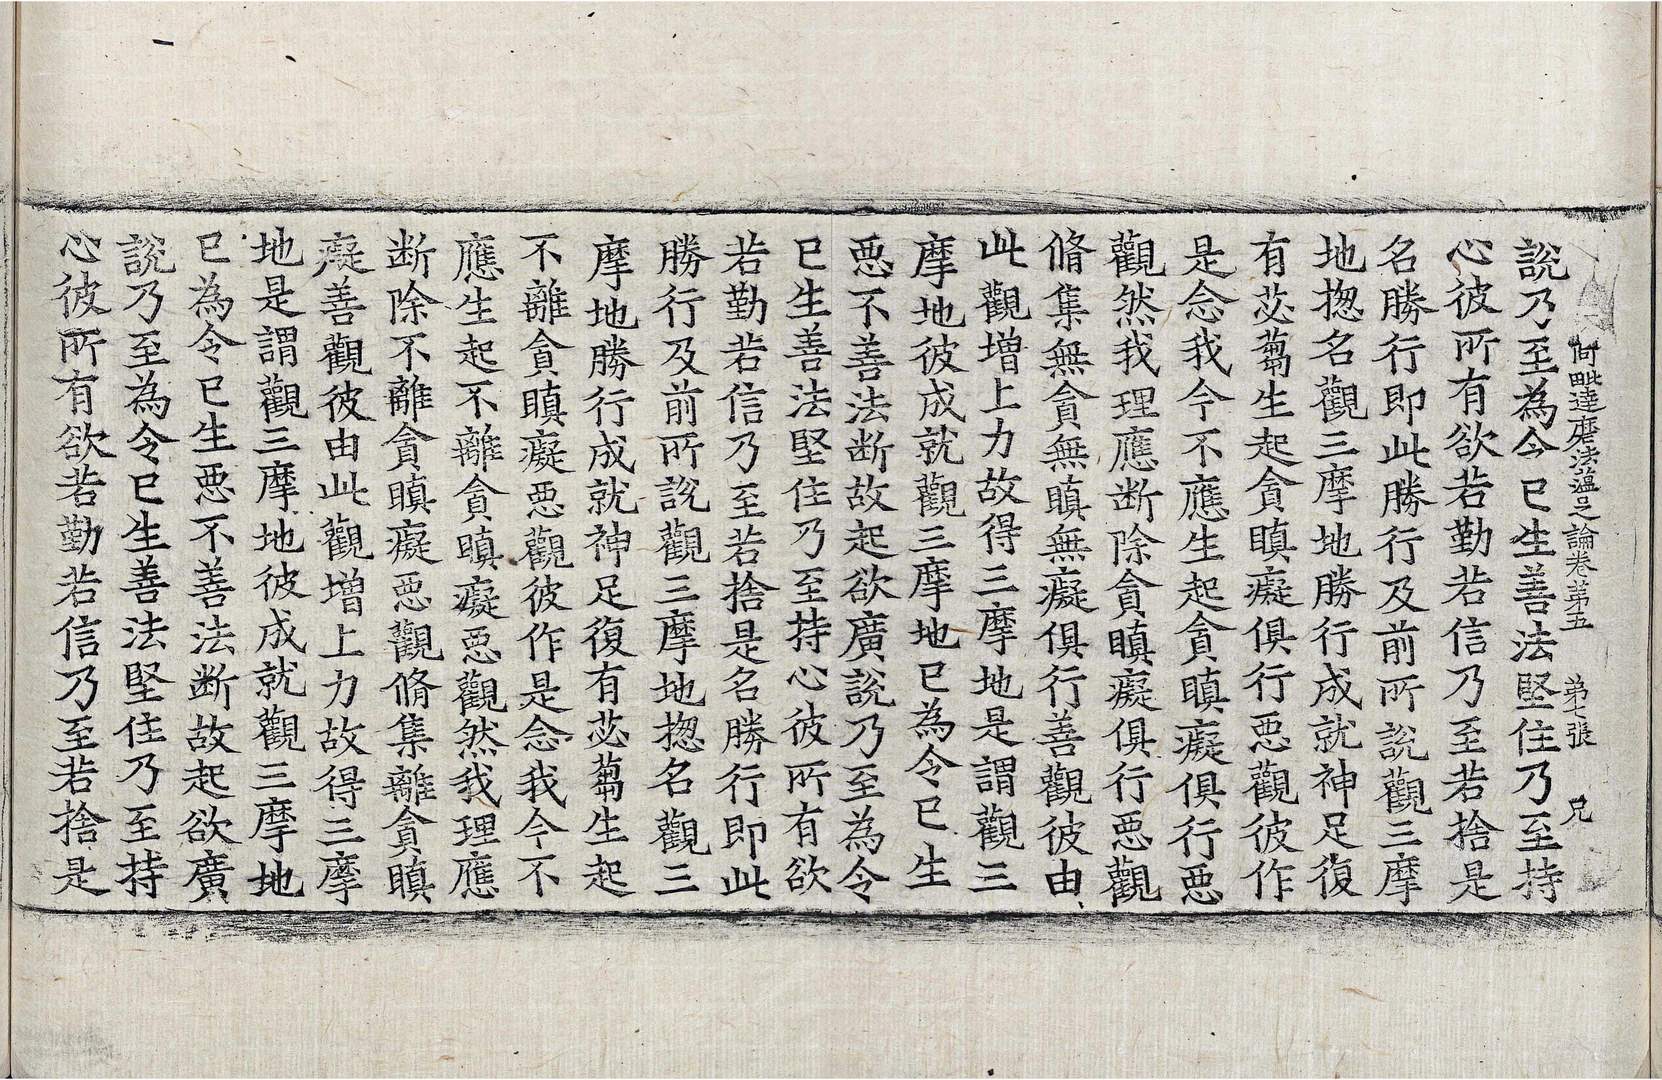 阿毗達磨法蘊足論卷第五 第七張 兄
說乃至為令已生善法堅住乃至持
心彼所有欲若勤若信乃至若捨是
名勝行即此勝行及前所說觀三摩
地揔名觀三摩地勝行成就神足復
有苾蒭生起貪瞋癡俱行悪觀彼作
是念我今不應生起貪瞋癡俱行悪
觀然我理應断除貪瞋癡俱行悪觀
脩集無貪無瞋無癡俱行善觀彼由
此觀增上力故得三摩地是謂觀三
摩地彼成就觀三摩地已為令已生
悪不善法断故起欲廣說乃至為令
已生善法堅住乃至持心彼所有欲
若勤若信乃至若捨是名勝行即此
勝行及前所說觀三摩地揔名觀三
摩地勝行成就神足復有苾蒭生起
不離貪瞋癡悪觀彼作是念我今不
應生起不離貪瞋癡悪觀然我理應
断除不離貪瞋癡悪觀脩集離貪瞋
癡善觀彼由此觀增上力故得三摩
地是謂觀三摩地彼成就觀三摩地
已為令已生悪不善法断故起欲廣
說乃至為令已生善法堅住乃至持
心彼所有欲若勤若信乃至若捨是